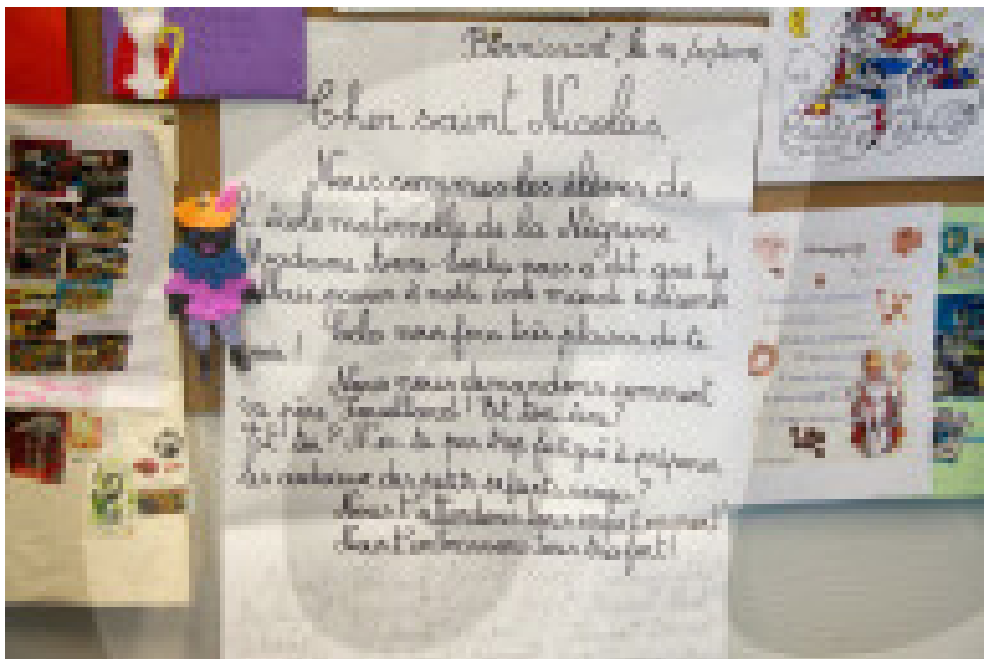 Bernissart, le
Cher saint Nicolas,
Nous sommes les élèves de
l'école maternelle de la Négresse
Madame nous a dit que tu
passer à notre école mardi
Cela nous fera très plaisir de te
voir !
Nous nous demandons comment
va père Fouettard ! Et ton âne ?
Et toi ? N'es-tu pas trop fatigué à préparer
les cadeaux des petits enfants sages ?
Nous t'attendons tous
Nous t'embrassons tous très fort !